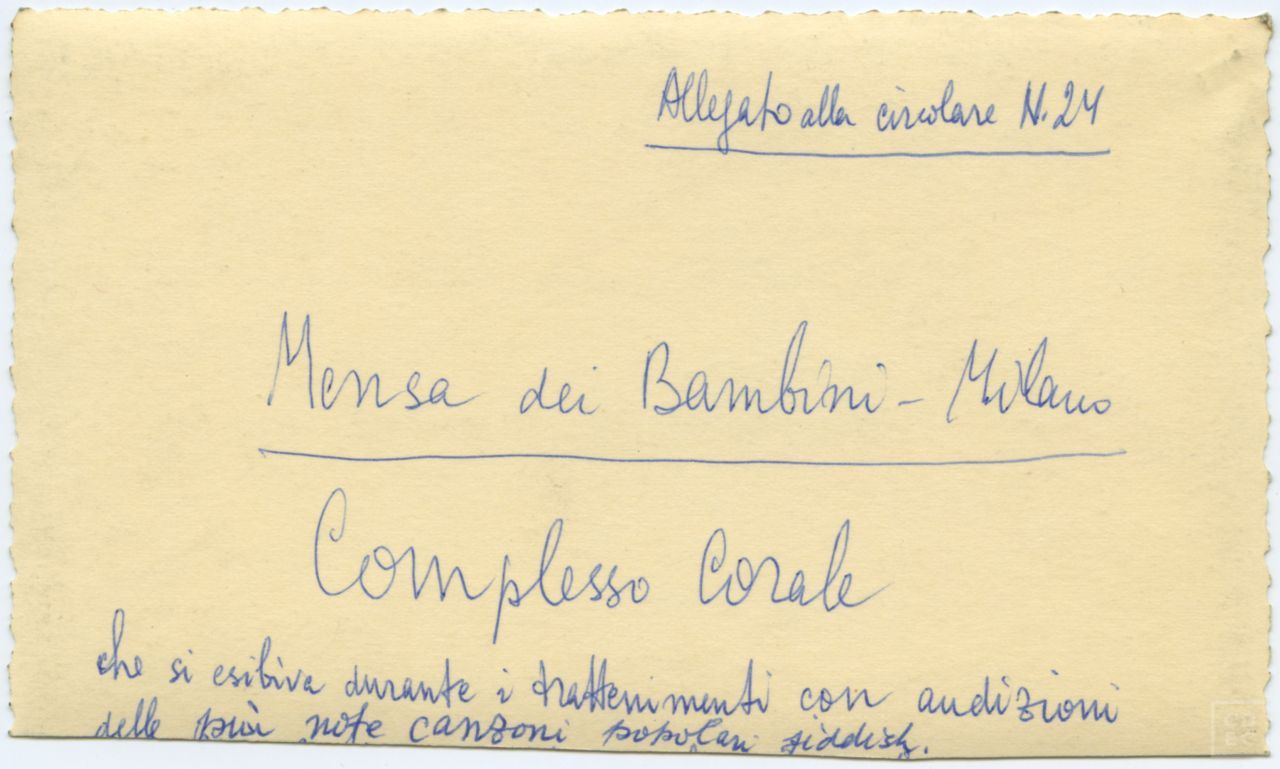 Allegato alla circolare N. 24
Mensa dei Bambini - Milano
Complesso Corale
che si esibiva durante i trattenimenti con audizioni
delle più note canzoni popolari jiddish.